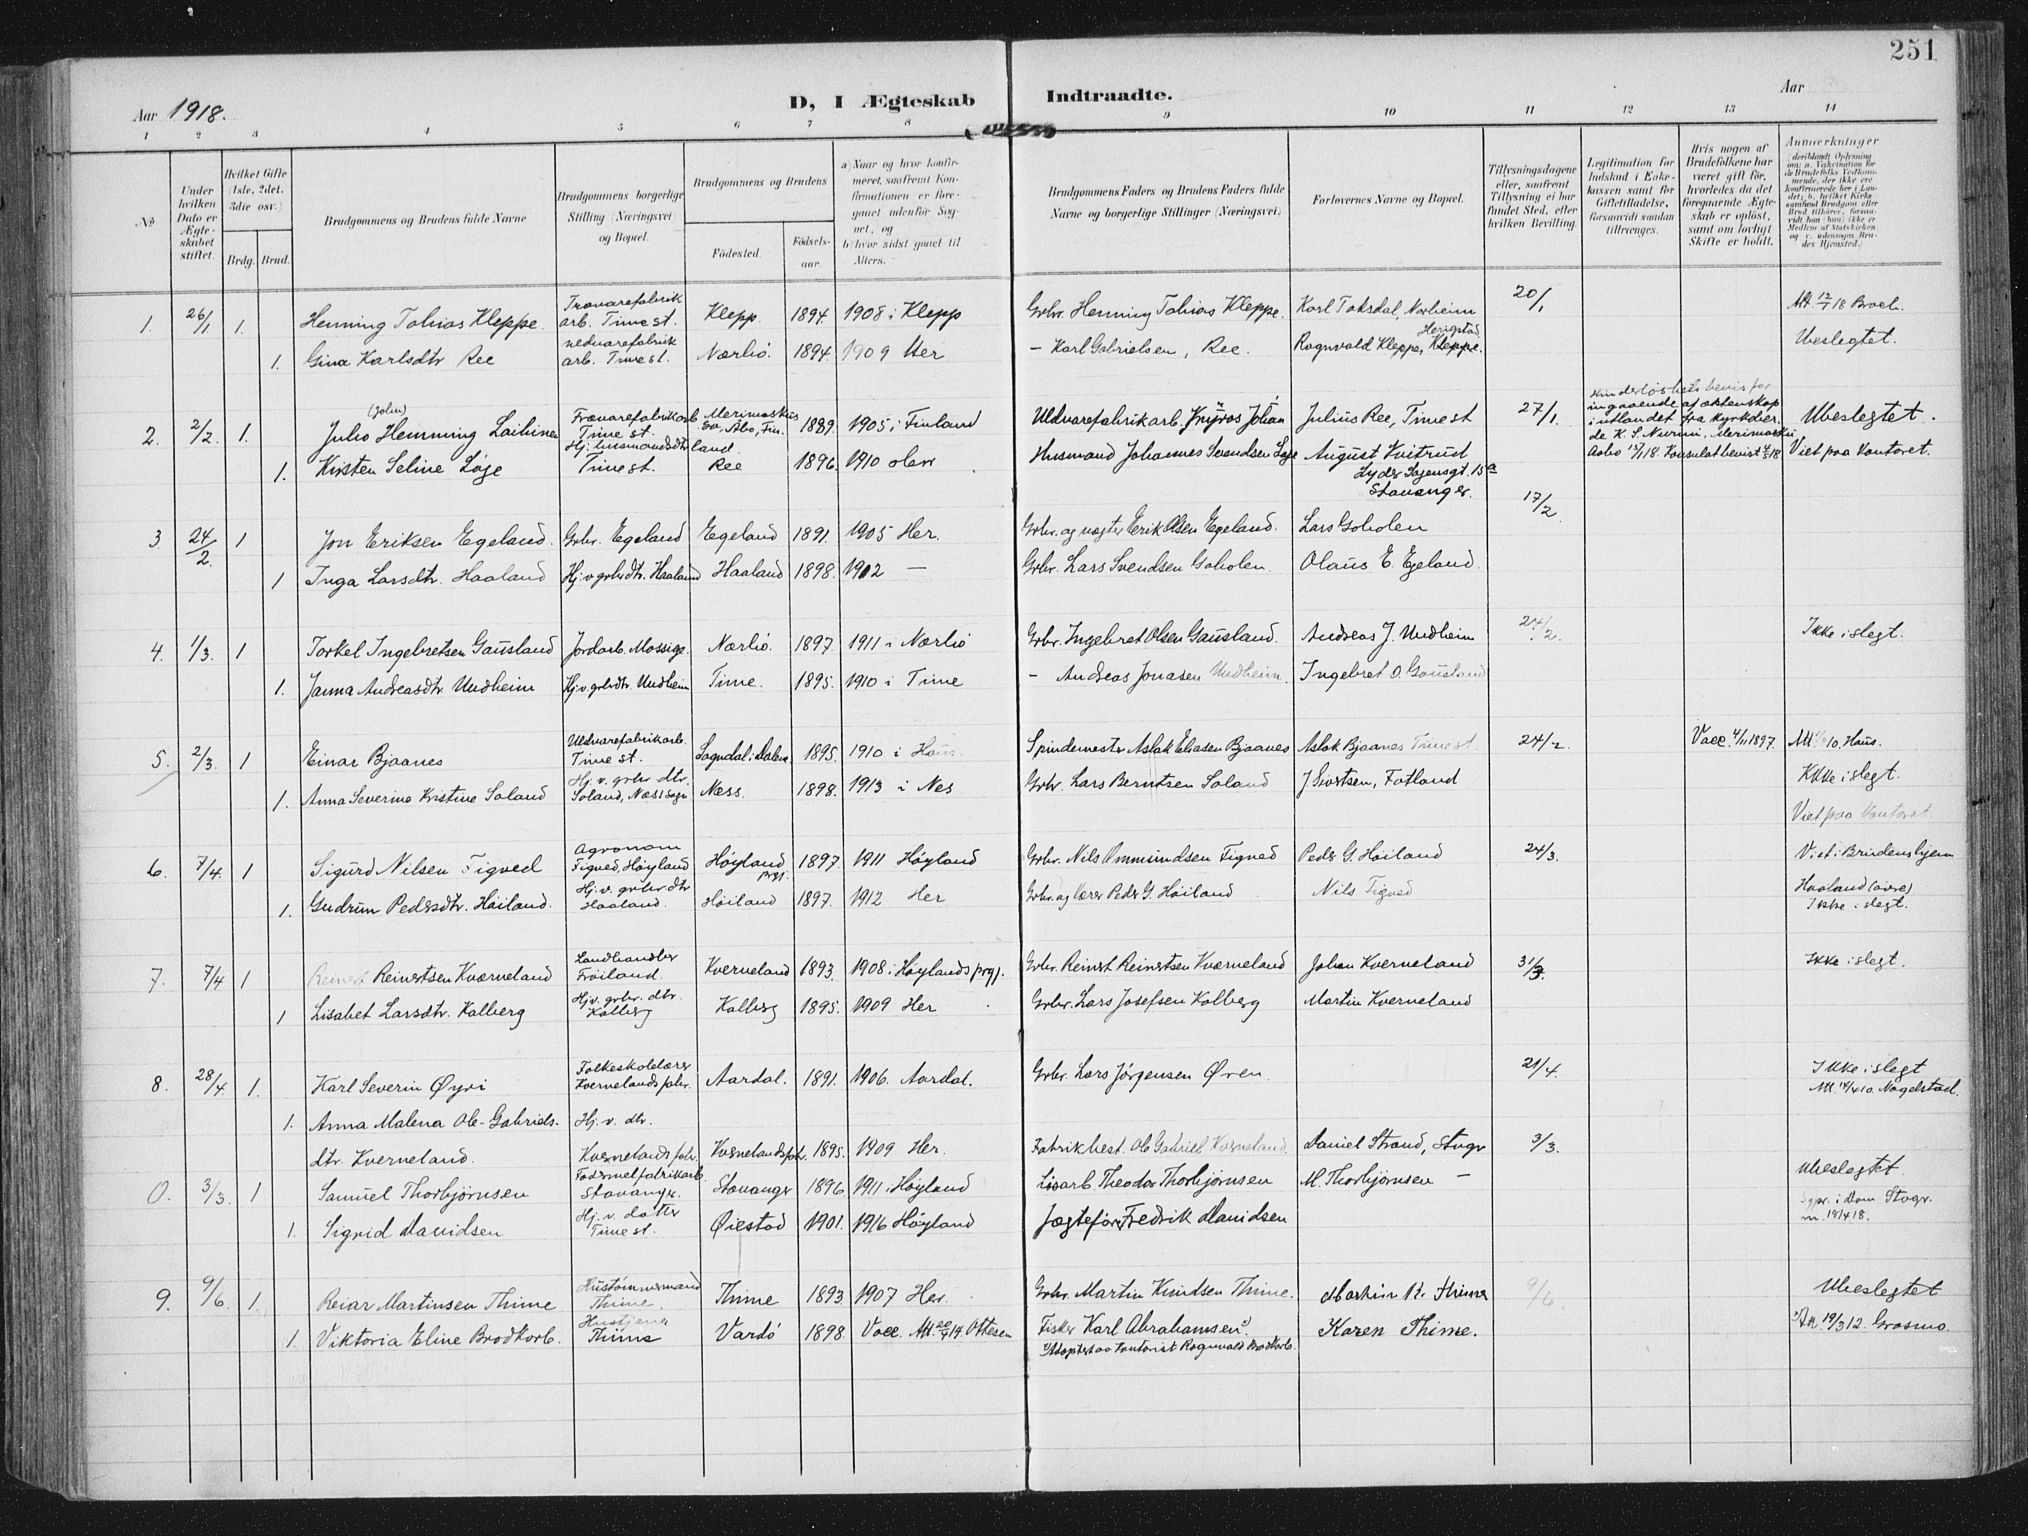 251
Aar 1918.
D, I Ægteskab Indtraadte.
Aar
1 2 3 4 5 6 7 8 9 10 11 12 13 14
No
Under hvilken Dato er Ægteskabet stiftet.
Hvilket Gifte (1ste, 2det, 3die osv.)
Brdg. Brud.
Brudgommens og Brudens fulde Navne
Brudgommens borgerlige Stilling (Næringsvei) og Bopæl.
Brudgommens og Brudens
Fødested.
Fødselsaar.
a) Naar og hvor konfirmeret, saafremt Konfirmationen er foregaaet udenfor Sognet, og
b) hvor sidst gaaet til Alters.
Brudgommens Faders og Brudens Faders fulde Navne og borgerlige Stillinger (Næringsvei)
Forlovernes Navne og Bopæl.
Tillysningsdagene eller, saafremt Tillysning ei har fundet Sted, efter hvilken Bevilling.
Legitimation for Indskud i Enkekassen samt for Giftetilladelse, forsaavidt saadan tiltrænges.
Hvis nogen af Brudefolkene har været gift før, hvorledes da det foregaaende Ægteskab er opløst, samt om lovligt Skifte er holdt.
Anmerkninger
1. 26/1 1. Henning Tobias Kleppe. Trævarefabrik arb. Time st. Klepp 1894. 1908 i Klepp Grbr. Henning Tobias Kleppe. Karl Taksdal, Norheim 20/1 Att. 12/1 18 Broch.
1. Gina Karlsdtr Ree uldvarefabrik arb. Time st. Nærbø. 1894. 1909 Her – Karl Gabrielsen, Ree. Rognvald Kleppe, Kleppe. Ubeslegtet.
2. 2/2. 1. (John) Juho Hemming Laihinen Trævarefabrikarb Time st. 1889. 1905 i Finland Julius Ree, Time st 27/1. Ubeslegtet.
1. Kirsten Seline Løge Hj. husmandsdtr Time st. Ree 1896. 1910 Husmand Johannes Svendsen Løge August Kvitrud Viet paa Kontoret.
Stavanger.
3. 24/2. 1 Jon Eriksen Egeland. Grbr. Egeland Egeland 1891. 1905 Her. Grbr. og Erik Olsen Egeland. Lars Goholen 17/2
1 Inga Larsdtr. Haaland Hj. v. grbrdtr. Haaland Haaland 1898. 1912 — Grbr. Lars Svendsen Goholen. Olaus E. Egeland.
4. 1/3. 1 Torkel Ingebretsen Gausland Jordarb. Mossige. Nærbø. 1897. 1911 i Nærbø Grbr. Ingebret Olsen Gausland. Andreas J. Undheim 24/2. Ikke i slegt.
1. Janna Andreasdtr Undheim Hj. v. grbrdtr. Undheim Time. 1895. 1910 i Time – Andreas Jonasen Undheim. Ingebret O. Gausland
5. 2/3. 1 Einar Bjaanes Uldvarefabrikarb. Time st. Sogndal i Dalene 1895. 1910 i Haus. Spindemester Aslak Eliasen Bjaanes Aslak Bjaanes Time st. 24/2. Vacc. 4/11 1897. Haus.
1. Anna Severine Kristine Soland Hj. v. grbr dtr. Soland, Næs sogn Næss. 1898. 1913 i Nes Grbr. Lars Berntsen Soland J. Sivertsen, Fotland Ikke i slegt.
Viet paa Kontoret.
6. 7/4. 1 Sigurd Nilsen Figved Agronom Figved, Høyland Høyland prgj. 1897. 1911 Høyland Grbr. Nils Ommundsen Figved Peder G. Høiland 24/3. Viet i Brudens hjem
1. Gudrun Pedersdtr. Høiland. Hj. v. grbr dtr Haaland. Høiland 1897. 1912 Her Grbr. og lærer Peder G. Høiland Nils Figved Haaland (øvre)
Ikke i slegt.
7. 7/4 1 Reinert Reinertsen Kverneland Landhandler Frøiland. Kverneland 1893. 1908 i Høylands prgj. Grbr. Reinert Reinertsen Kverneland Johan Kverneland 31/3. Ikke i slegt.
1 Lisabet Larsdtr. Kalberg Hj. v. grbr. dtr. Kalberg Kalberg 1895. 1909 Her Grbr. Lars Josefsen Kalberg Martin Kverneland
8. 28/4 1. Karl Severin Øyri Folkeskolelærer Kvernelands fabr. Aardal. 1891. 1906. Aardal. Grbr. Lars Jørgensen Øren. 21/4. Ikke i slegt
1. Anna Malena Ole-Gabriels- Hj. v. dtr.
dtr. Kverneland. Kvernelands fabr. Kvernelands fabr. 1895. 1909 Her. Fabrikbest. Ole Gabriel Kverneland. Daniel Strand, Stvgr 3/3.
0. 3/3. 1 Samuel Thorbjørnsen Stavanger. Stavanger 1896. 1911 i Høyland Theodor Thorbjørnsen M. Thorbjørnsen – Ubeslegtet
1. Sigrid Davidsen Hj. v. datter Time st. Øiestad 1901. 1916 Høyland Jægtefører Fredrik Davidsen
9. 9/6. 1. Reiar Martinsen Thime Hustømmermand Thime. Thime 1893. 1907 Her. Grbr. Martin Knudsen Thime. Martin K. Thime 9/6. Ubeslegtet
1. Viktoria Eline Brodkorb. Thime Vardø 1898. Vacc. Att. Ottesen Fisker Karl Abrahamsen Karen Thime. 19/3 12. Grasmo.
Kontorist Rognvald Brodkorb.